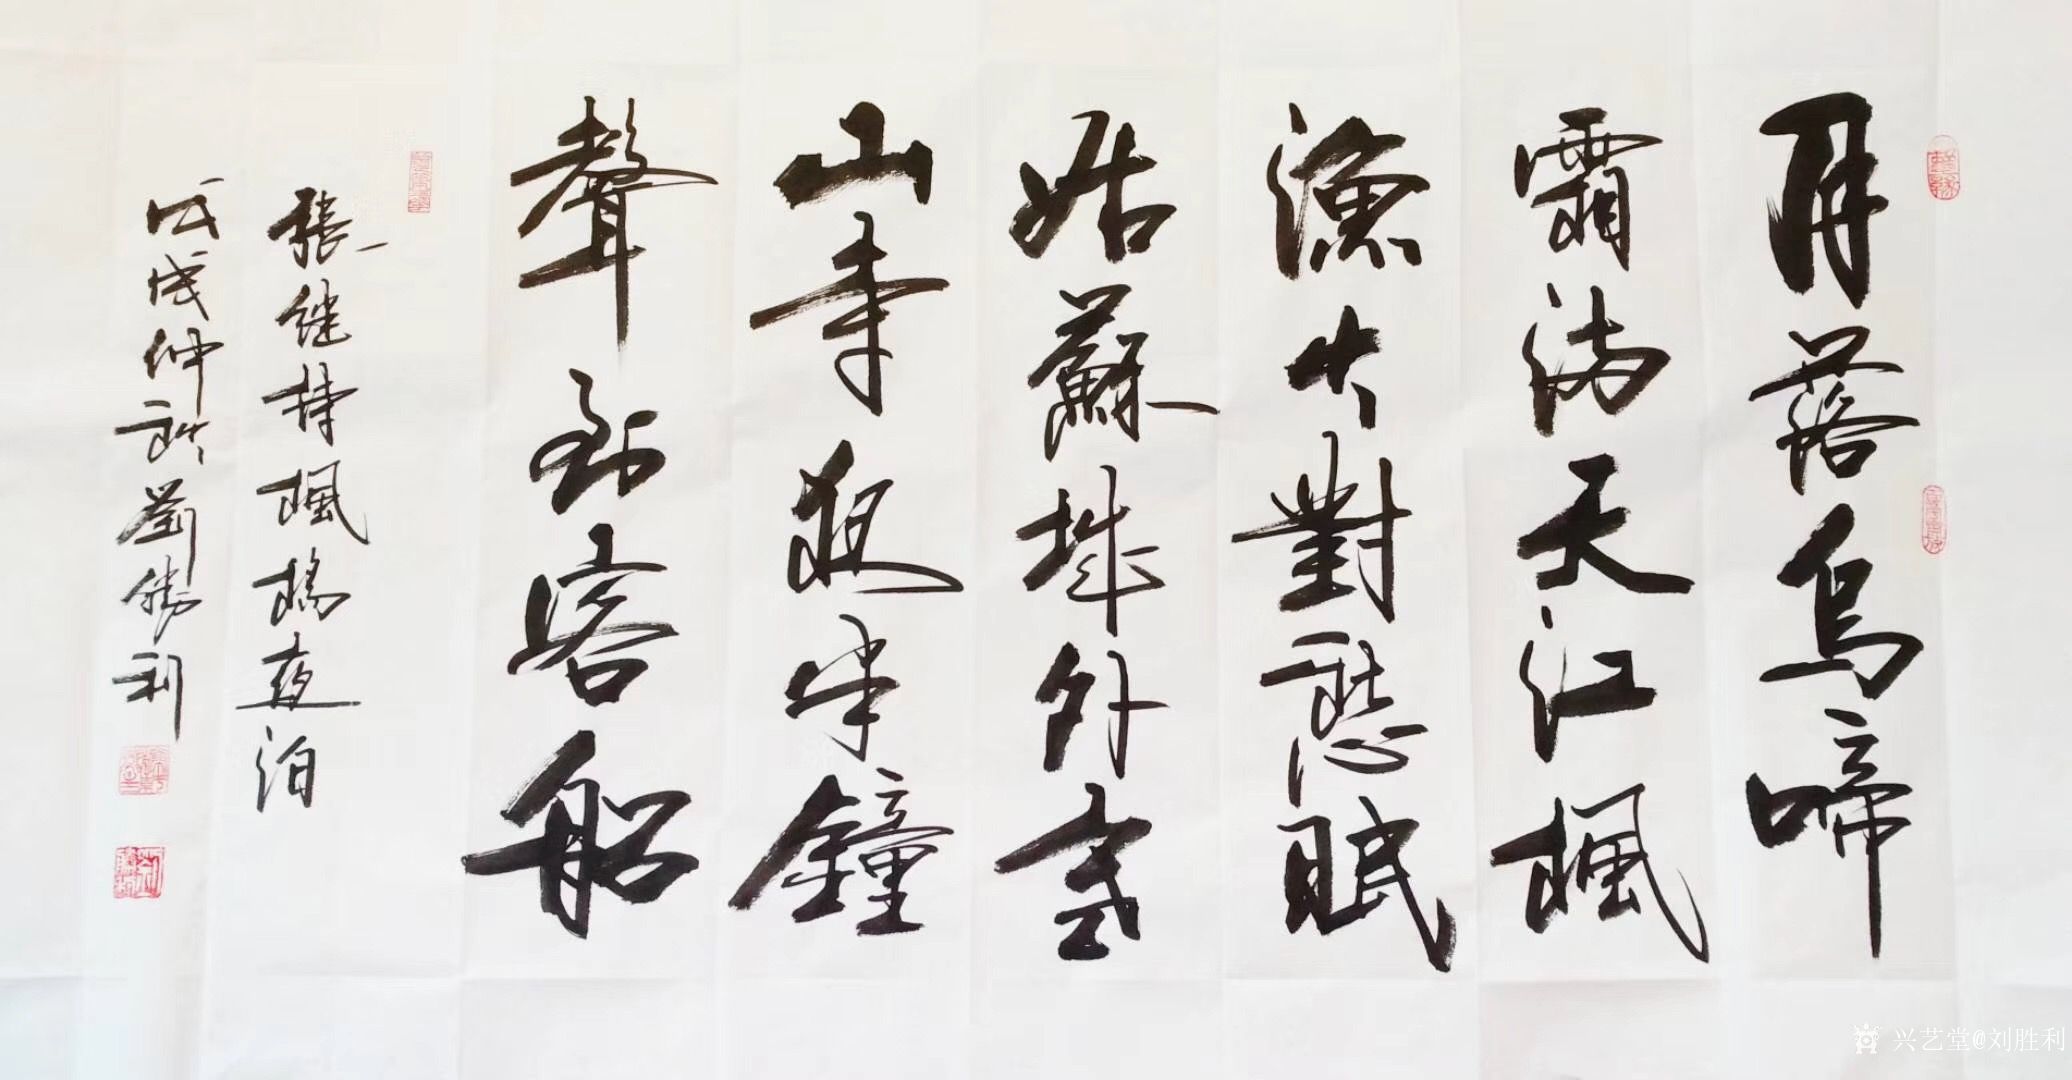 月落烏啼
霜满天江楓
漁火對愁眠
姑蘇城外寒
山寺夜半鐘
聲到客船
張继诗楓橋夜泊
戊戌仲秋劉勝利
兴艺堂@刘胜利